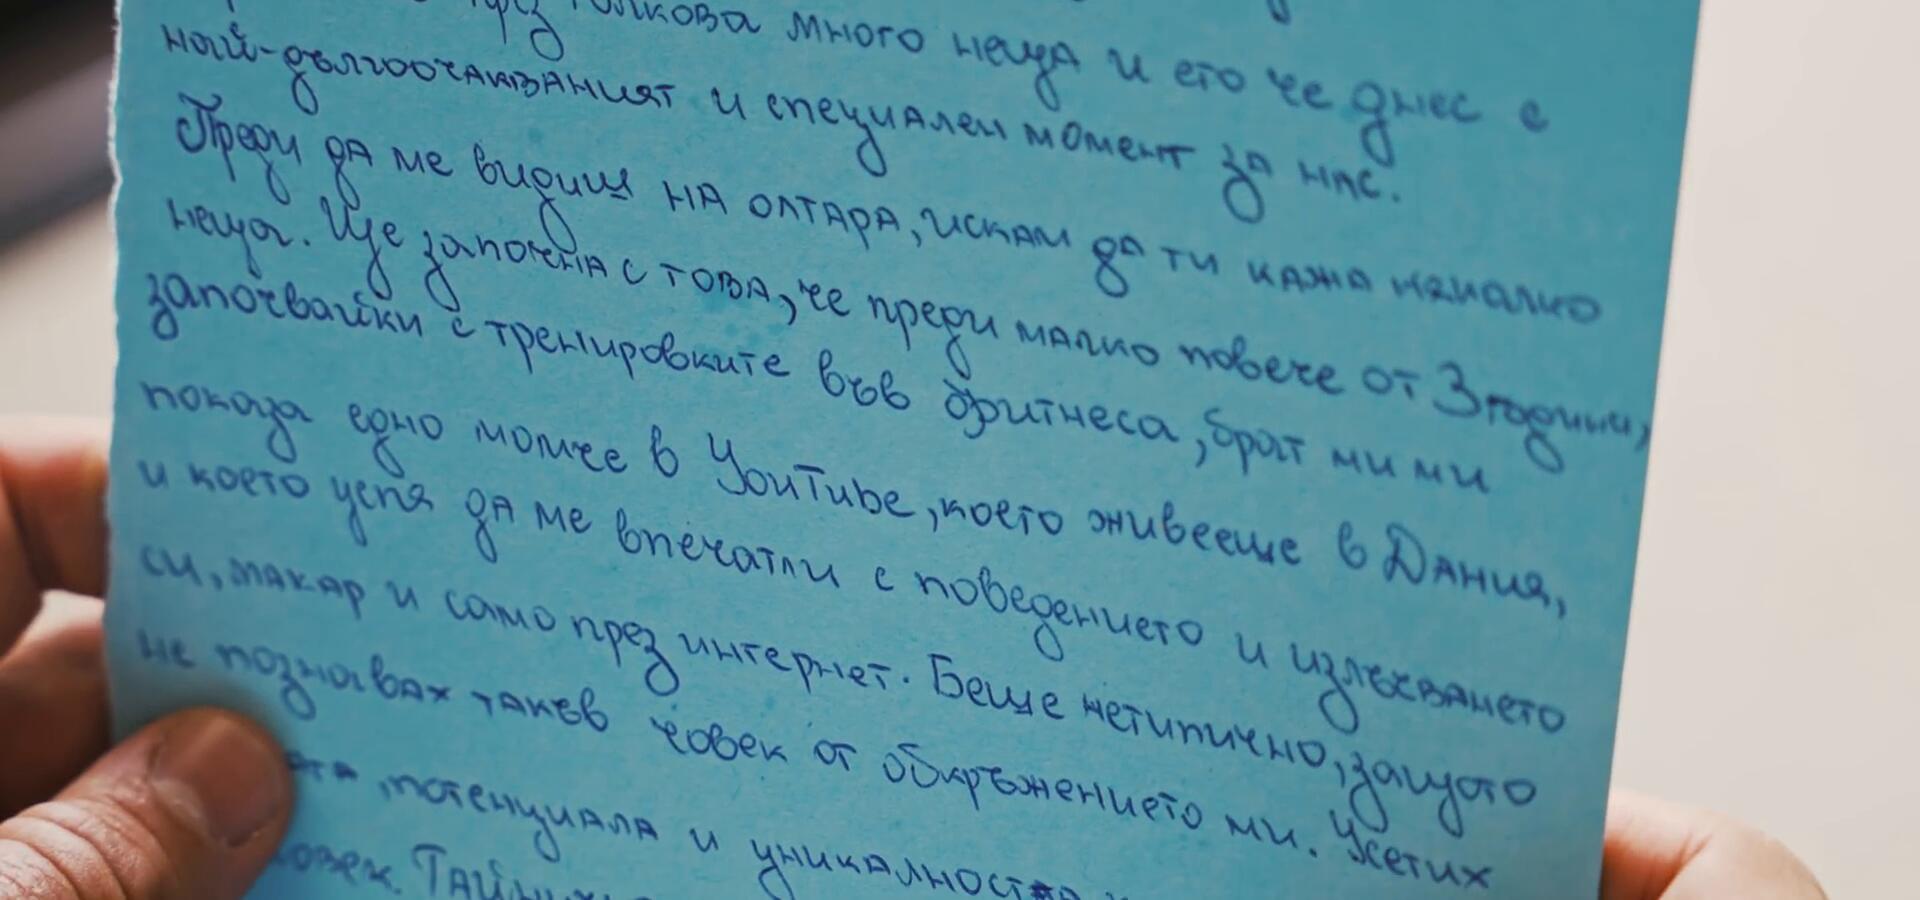 през толкова много неща и ето че днес е
най-дългоочакваният и специален момент за нас.
Преди да ме видиш на олтара, искам да ти кажа няколко
неща. Ще започна с това, че преди малко повече от 3 години,
започвайки с тренировките във фитнеса, брат ми ми
показа едно момче в YouTube, което живееше в Дания,
и което успя да ме впечатли с поведението и излъчването
си, макар и само през интернет. Беше нетипично, защото
не познавах такъв човек от обкръжението ми. Усетих
потенциала и уникалността